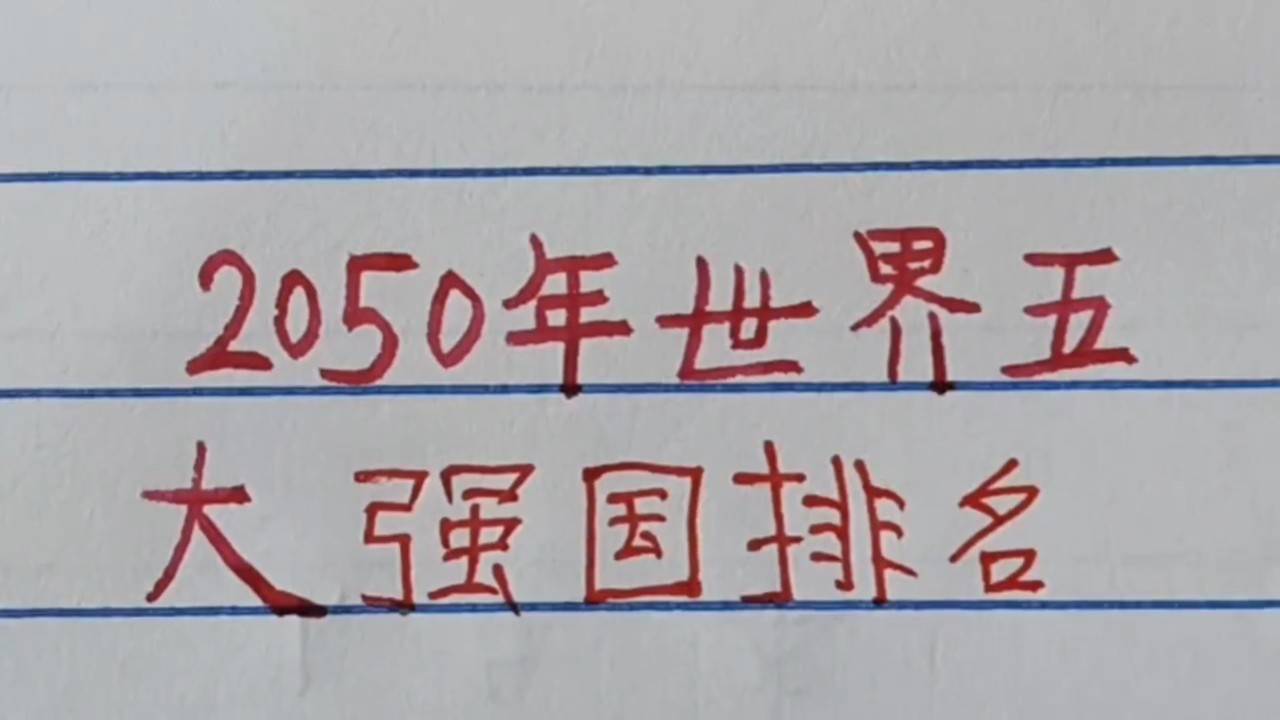 2050年世界五
大强国排名